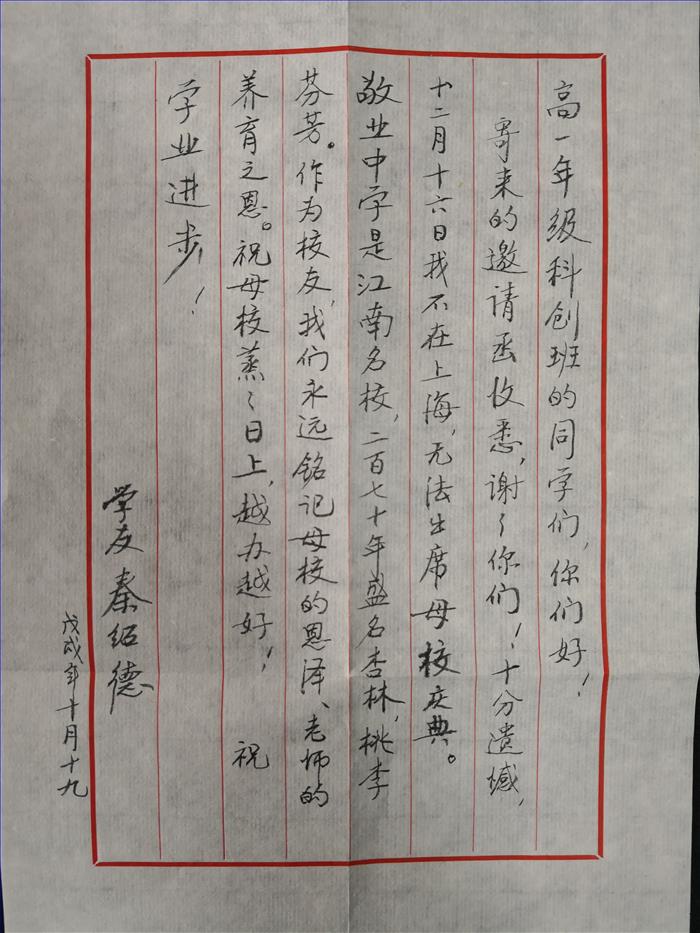 高一年级科创班的同学们，你们好！
寄来的邀请函收悉，谢々你们！十分遗憾，
十二月十六日我不在上海，无法出席母校庆典。
敬业中学是江南名校，二百七十年盛名杏林，桃李
芬芳。作为校友，我们永远铭记母校的恩泽、老师的
养育之恩。祝母校蒸々日上，越办越好！ 祝
学业进步！
学友 秦绍德
戊戌年十月十九